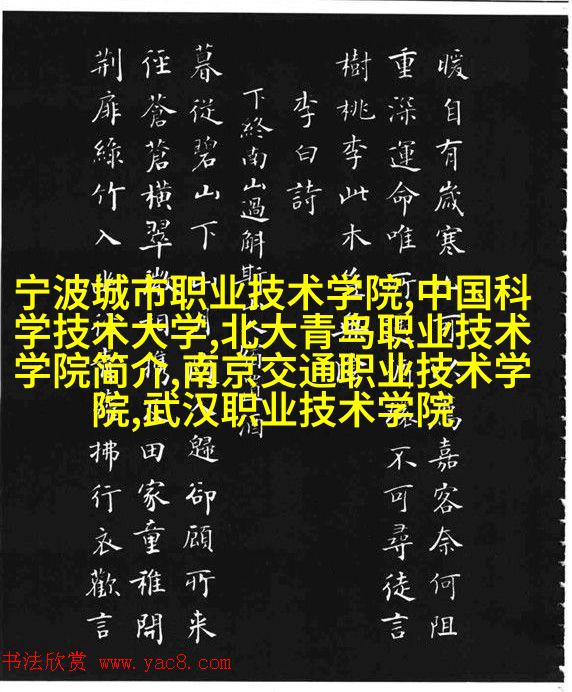 暖自有歲寒嘉客奈何阻
重深運命唯所不可尋徒言
樹桃李此木
李白詩
下終南山過斛斯酒
暮從碧山下月歸卻顧所来
徑蒼蒼橫翠相携田家童稚開
荆扉綠竹入拂行衣歡言
宁波城市职业技术学院,中国科
学技术大学,北大青鸟职业技术
学院简介,南京交通职业技术学
院,武汉职业技术学院
书法欣赏 www.yac8.com